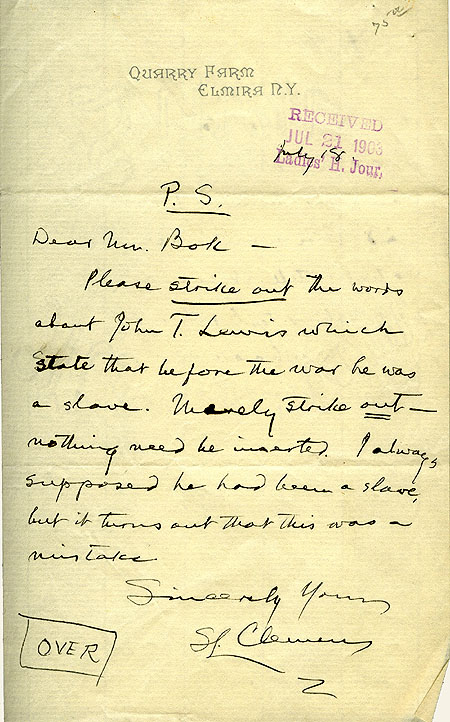 QUARRY FARM
ELMIRA N.Y.
RECEIVED
JUL 21 1903
Ladies' H. Jour.
July 18
P. S.
Dear Mr. Bok —
Please strike out the words
about John T. Lewis which
state that before the war he was
a slave. Merely strike out —
nothing need be inserted. I always
supposed he had been a slave,
but it turns out that this was a
mistake
Sincerely Yours
SL. Clemens
OVER